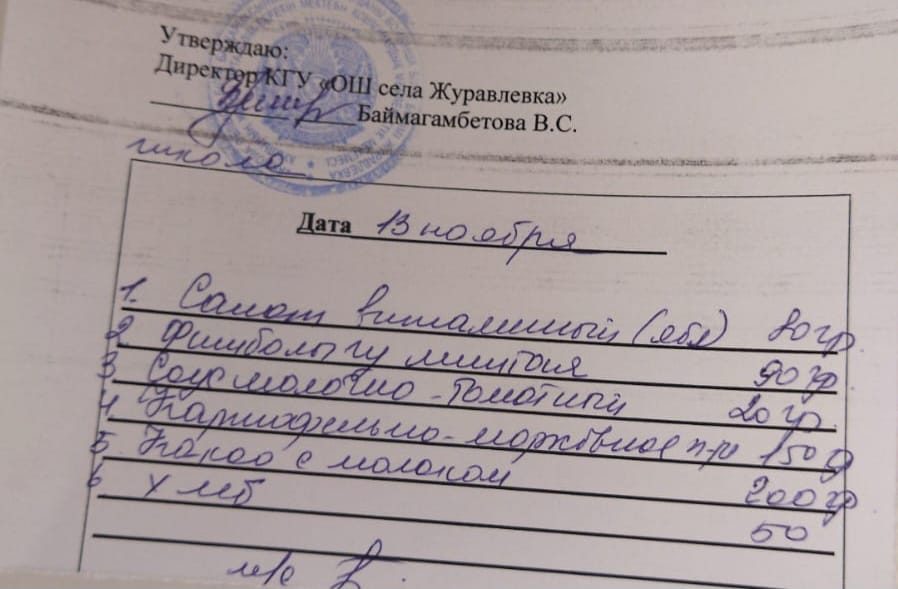 Утверждаю:
Директор КГУ «ОШ села Журавлевка»
Баймагамбетова В.С.
школа
Дата 13 ноября
1. Салат витаминный (ябл) 80 гр.
2. Фишболы гу минтая 90 гр.
3. Соус молочно-томатный 20 гр.
4. Картофельно-морковное п-ре 150 г
5. Какао с молоком 200 гр.
6 Хлеб 50
м/с